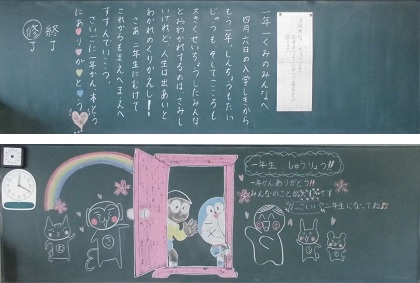 一年一くみのみんなへ
四月六日の入学しきから
もう一年。しんちょうもたい
じゅうも、そしてこころも
大きくせいちょうしたみんな
とおわかれするのは、さみし
いけれど、人生は出あいと
わかれのくりかえし!!
さあ、二年生にむけて
これからもまえへまえへ
すすんでいこう。
さいごに一年かん、本とう
にありがとう
終了
修了
一年生 しゅうりょう!!
一年かんありがとう!!
みんなのことが です
かっこいい二年生になってね